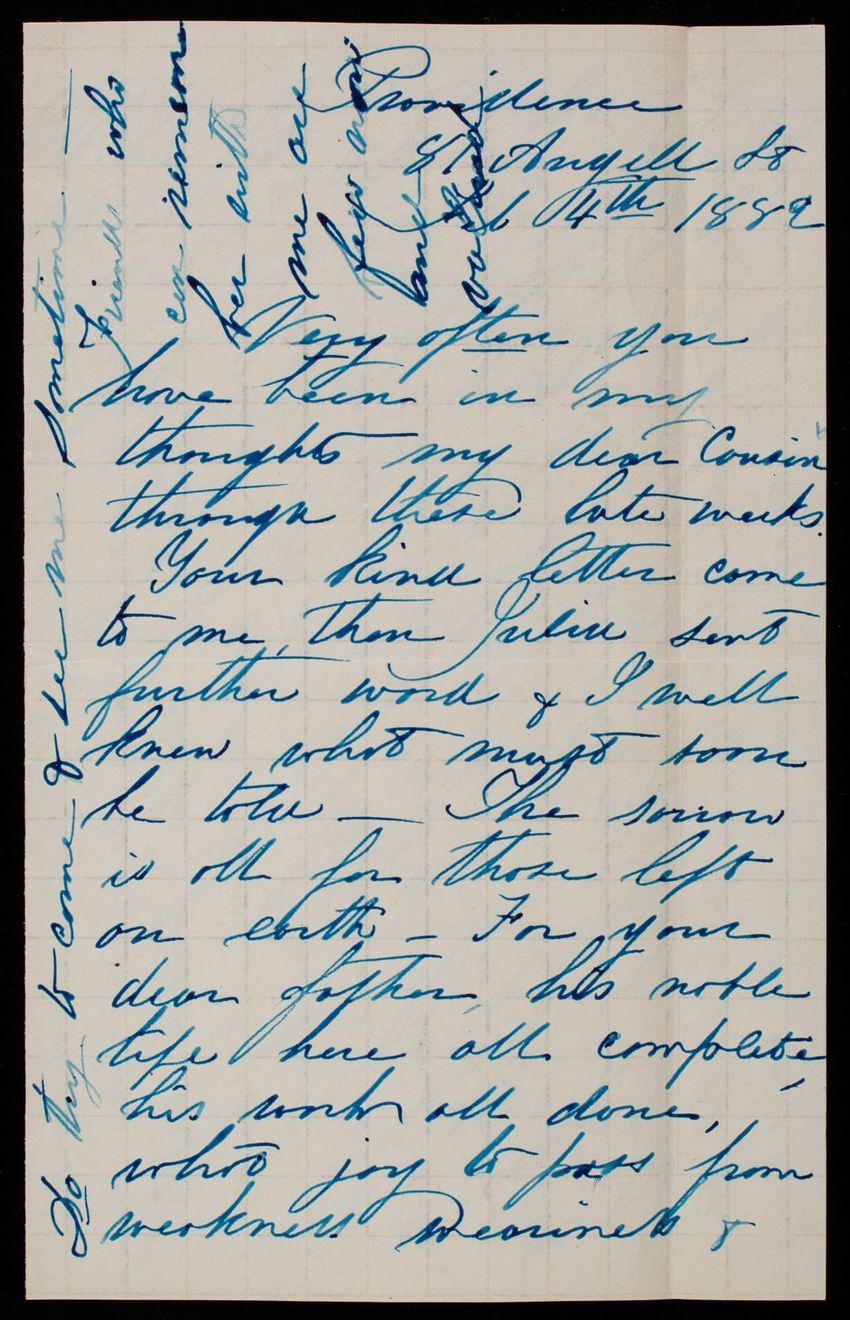 Providence
81 Angell St
Feb 4th 1889
Very often you
have been in my
thoughts my dear Cousin
through these late weeks.
Your kind letter came
to me, then Julia sent
further word & I well
knew what must soon
be told — The sorrow
is all for those left
on earth — For your
dear father, his noble
life here all complete,
his work all done,
what joy to pass from
weakness weariness &
Do try to come & see me sometime —
Friends who
can remem
ber with
me are
few now
and